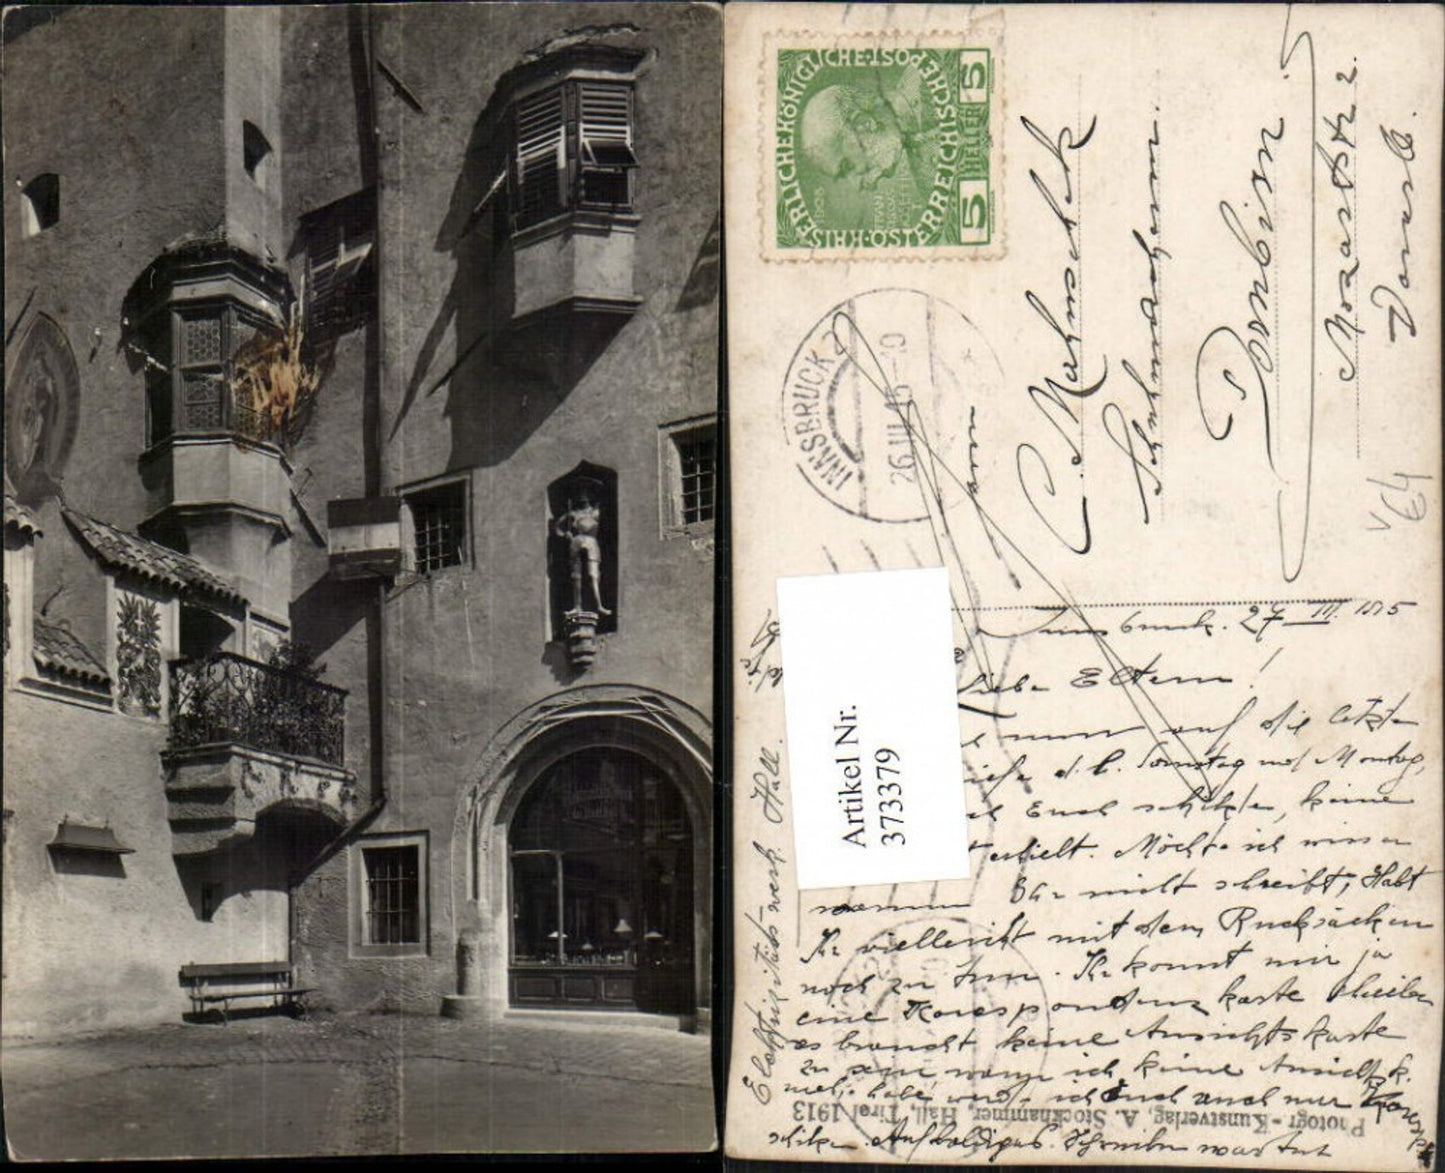 KAISERLICHE KÖNIGLICHE ÖSTERREICHISCHE POST
5 HELLER 5
INNSBRUCK 2
26.III.15-10
C. Mahnschek
Schuhmacherm.
Dornbirn
Mozartstr 2.
Vorarlb.
V64
Artikel Nr.
373379
Innsbruck. 27 III. 1915
Liebe Eltern!
nun auf die letzte
d. h. Sonntag und Montag,
Euch schickte, keine
erhielt. Möchte ich wissen
warum Ihr nicht schreibt, Habt
Ihr vielleicht mit dem Rucksäcken
noch zu tun. Ihr konnt mir ja
eine Korespondenz karte schreiben
es braucht keine Ansichtskarte
zu sein wann ich keine Ansichtsk.
mehr habe werde ich Euch auch nur Koresp.
schiken. Auf baldiges Schreiben wartet
Elektrizitätswerk Hall.
Photogr.-Kunstverlag, A. Stockhammer, Hall, Tirol 1913